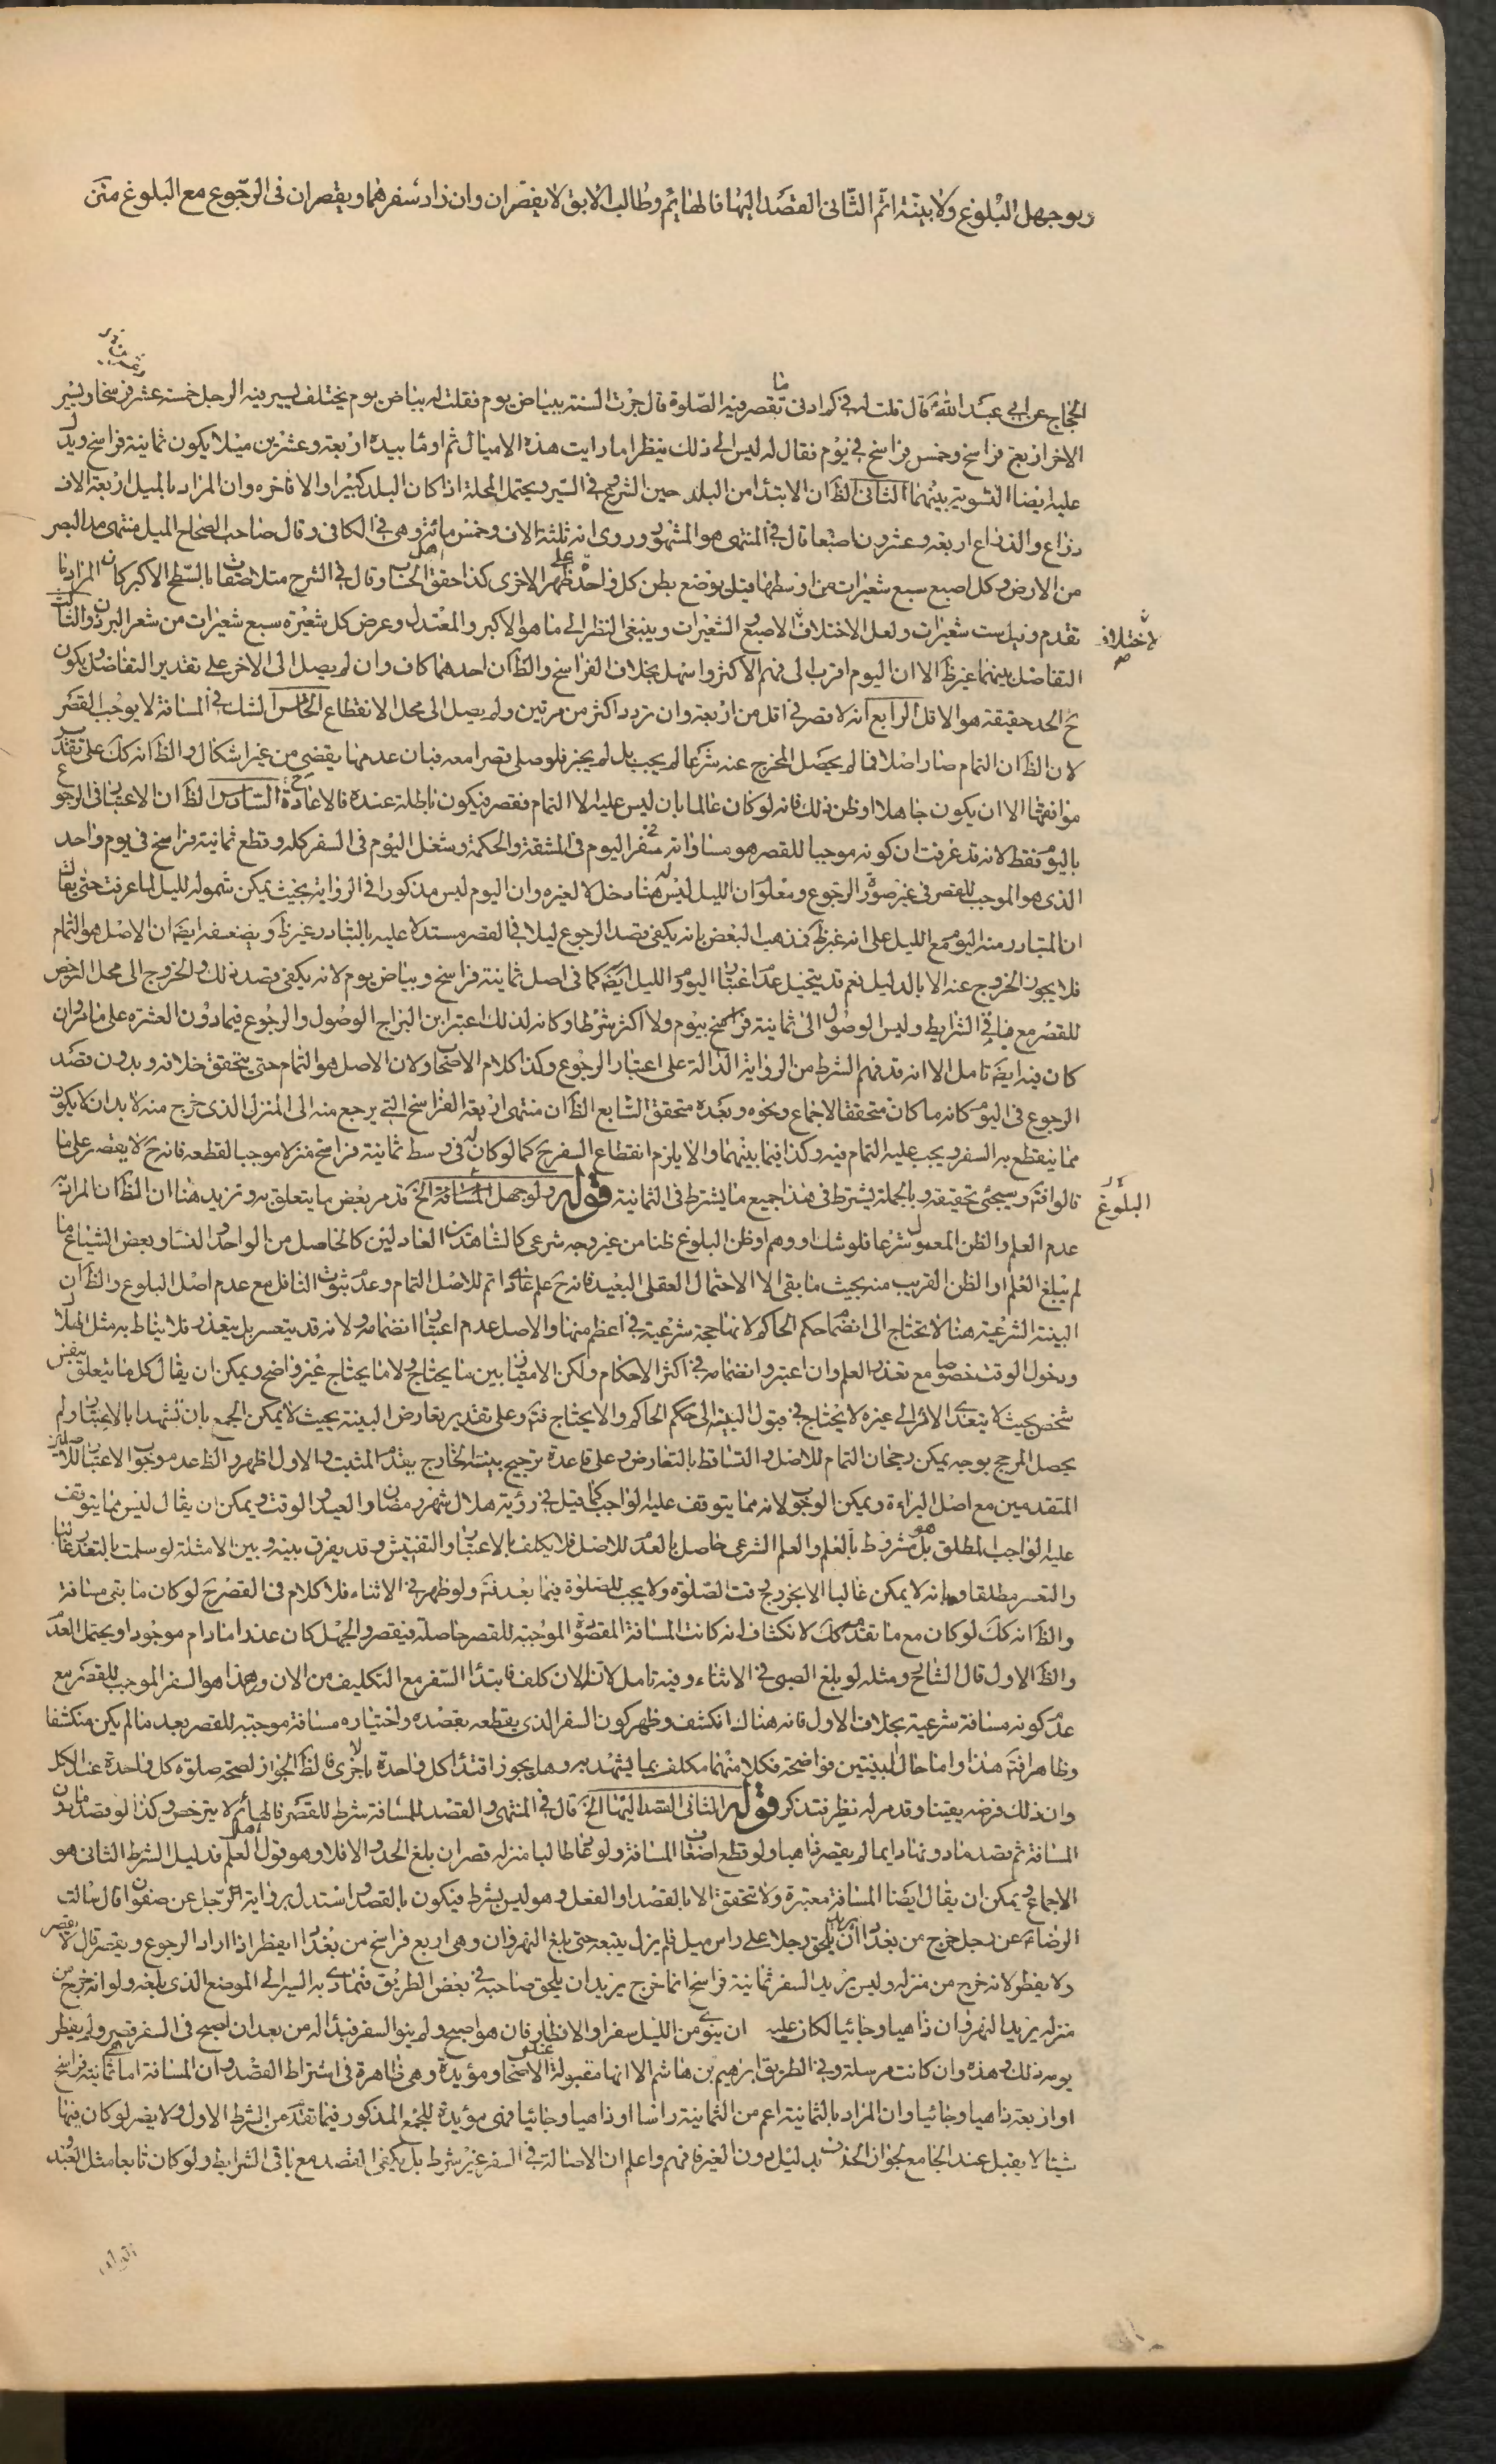 ولو جهل البلوغ ولا بينة اتم الثانى القصد اليها فالهايم وطالب الآبق لا يقصران وان زاد سفرهما ويقصران فى الرجوع مع البلوغ متن
الحجاج عن ابى عبد الله ع قال قلت له فى كم ادنى ما تقصر فيه الصلوة قال جرت السنة ببياض يوم فقلت له بياض يوم يختلف يسير فيه الرجل خمسة عشر فرسخا ويسير
الاخر اربعة فراسخ وخمس فراسخ فى يوم فقال له ليس الى ذلك ينظر اما رايت هذه الاميال ثم اومأ بيده اربعة وعشرين ميلا يكون ثمانية فراسخ ويدل
عليه ايضا التسوية بينهما الثانى الظ ان الابتدا من البلد حين الشروع فى السير ويحتمل المحلة اذا كان البلد كبيرا والا فاخره وان المراد بالميل اربعة الاف
ذراع والذراع اربعة وعشرون اصبعا قال فى المنتهى هو المشهور وروى انه ثلثة الاف وخمس مائة وهى فى الكافى وقال صاحب الصحاح الميل منتهى مد البصر
من الارض وكل اصبع سبع شعيرات من اوسطها قيل يوضع بطن كل واحد على ظهر الاخرى كذا حقق اهل الحساب وقال فى الشرح متلاصقات بالسطح الاكبر كان المراد ما
تقدم وقيل ست شعيرات ولعل الاختلاف لاختلاف الاصبع والشعيرات وينبغى النظر الى ما هو الاكبر والمعتدل وعرض كل شعيرة سبع شعيرات من شعر البرذون الثالث
التفاضل بينهما غير ظ الا ان اليوم اقرب الى فهم الاكثر واسهل بخلاف الفراسخ والظ ان احدهما كاف وان لم يصل الى الاخر على تقدير التفاضل ويكون
ح الحد حقيقة هو الاقل الرابع انه لا قصر فى اقل من اربعة وان تردد اكثر من مرتين ولم يصل الى محل الانقطاع الخامس الشك فى المسافة لا يوجب القصر
لان الظ ان التمام صار اصلا فما لم يحصل المخرج عنه شرعا لم يجب بل لم يجز فلو صلى قصرا معه فبان عدمها يقضى من غير اشكال والظ انه كك على تقدير
موافقتها الا ان يكون جاهلا او ظن ذلك فانه لو كان عالما بان ليس عليه الا التمام فقصر فيكون باطلة عنده فالاعادة السادس الظ ان الاعتبار فى الرجوع
باليوم فقط لانه قد عرفت ان كونه موجبا للقصر هو مساواته سفر اليوم فى المشقة والحكمة وشغل اليوم فى السفر كله وقطع ثمانية فراسخ فى يوم واحد
الذى هو الموجب للقصر فى غير صورة الرجوع ومعلوم ان الليل ليس له هنا دخل لا لغيره وان اليوم ليس مذكورا فى الرواية بحيث يمكن شموله لليل لما عرفت حتى يقال
ان المتبادر منه اليوم مع الليل على انه غير ظ فذهب البعض بانه يكفى قصد الرجوع ليلا فى القصر مستدلا عليه بالتبادر غير ظ ويضعفه ايضا ان الاصل هو التمام
فلا يجوز الخروج عنه الا بالدليل نعم قد يتخيل عدم اعتبار اليوم والليل ايضا كما فى اصل ثمانية فراسخ وبياض يوم لانه يكفى قصد ذلك والخروج الى محل الترخص
للقصر مع باقى الشرايط وليس الوصول الى ثمانية فراسخ بيوم ولا اكثر شرطا وكانه لذلك اعتبر ابن البراج الوصول والرجوع فيما دون العشرة على ما مر وان
كان فيه ايضا تامل الا انه قد فهم الشرط من الرواية الدالة على اعتبار الرجوع وكذا كلام الاصحاب ولان الاصل هو التمام حتى يتحقق خلافه وبدون قصد
الرجوع فى اليوم كانه ما كان متحققا لاجماع ونحوه وبعده متحقق السابع الظ ان منتهى اربعة الفراسخ التى يرجع منه الى المنزل الذى خرج منه لا بد ان لا يكون
مما ينقطع به السفر ويجب عليه التمام فيه وكذا فيما بينهما والا يلزم انقطاع السفر ح كما لو كان له فى وسط ثمانية فراسخ منزلا موجبا لقطعه فانه ح لا يقصر على ما
قالوا فتم وسيجئ تحقيقه وبالجملة يشترط فى هذا جميع ما يشترط فى الثمانية قوله ولو جهل المسافة الخ قد مر بعض ما يتعلق به ونزيد هنا ان الظ ان المراد به
البلوغ
عدم العلم والظن المعمول شرعا فلو شك او وهم او ظن البلوغ ظنا من غير وجه شرعى كالشاهدين العادلين كالحاصل من الواحد والنساء وبعض الشياع ما
لم يبلغ العلم او الظن القريب منه بحيث ما بقى الا الاحتمال العقلى البعيد فانه ح علم عادة اتم للاصل التمام وعدم ثبوت الناقل مع عدم اصل البلوغ والظ ان
البينة الشرعية هنا لا تحتاج الى انضمام حكم الحاكم لانها حجة شرعية فى اعظم منها والاصل عدم اعتبار انضمامه ولانه قد يتعسر بل يتعذر فلا يناط به مثل الهلال
ودخول الوقت خصوصا مع تعذر العلم وان اعتبر وانضمامه فى اكثر الاحكام ولكن الامتياز بين ما يحتاج ولا ما يحتاج غير واضح ويمكن ان يقال كل ما يتعلق بنفس
شخص بحيث لا يتعدى الاثر الى غيره لا يحتاج فى قبول البينة الى حكم الحاكم والا يحتاج فتم وعلى تقدير تعارض البينة بحيث لا يمكن الجمع بان تشهدا بالاعتبار ولم
يحصل المرجح بوجه يمكن رجحان التمام للاصل والتساقط بالتعارض وعلى قاعدة ترجيح بينة الخارج يقدم المثبت والاول اظهر والظ عدم وجوب الاعتبار للاصلين
المتقدمين مع اصل البراءة ويمكن الوجوب لانه مما يتوقف عليه الواجب كما قيل فى رؤية هلال شهر رمضان والعيد والوقت ويمكن ان يقال ليس مما يتوقف
عليه الواجب المطلق بل هو مشروط بالعلم والعلم الشرعى حاصل بالعدم للاصل فلا يكلف بالاعتبار والتفتيش وقد يفرق بينه وبين الامثلة لو سلمت بالتعذر غالبا
والتعسر مطلقا وبانه لا يمكن غالبا الا بخروج وقت الصلوة ولا يجب للصلوة فيما بعد فتم ولو ظهر فى الاثناء فلا كلام فى القصر ح لو كان ما بقى مسافة
والظ انه كك لو كان مع ما تقدم كك لانكشاف انه كانت المسافة المقصودة الموجبة للقصر حاصلة فيقصر والجهل كان عذرا ما دام موجودا ويحتمل العدم
والظ الاول قال الشارح ومثله لو بلغ الصبى فى الاثناء وفيه تامل لانه الان كلف فابتدأ السفر مع التكليف من الان وهذا هو السفر الموجب للقصر مع
عدم كونه مسافة شرعية بخلاف الاول فانه هناك انكشف وظهر كون السفر الذى يقطعه بقصده واختياره مسافة موجبة للقصر بعد ما لم يكن منكشفا
وظاهرا فتم هذا واما حال البينتين فواضحة فكل منهما مكلف بما يشهد به وهل يجوز اقتدا كل واحدة بالاخرى فالظ الجواز لصحة صلوة كل واحدة عند الكل
وان ذلك فرضه يقينا وقد مر له نظير فتذكر قوله الثانى القصد اليها الخ قال فى المنتهى والقصد للمسافة شرط للقصر فالهائم لا يترخص وكذا لو قصد ما دون
المسافة ثم قصد ما دونها دايما لم يقصر ذاهبا ولو قطع اضعاف المسافة ولو عاد طالبا منزله قصر ان بلغ الحد والا فلا وهو قول اهل العلم فدليل الشرط الثانى هو
الاجماع ويمكن ان يقال ايضا المسافة معتبرة ولا تتحقق الا بالقصد او الفعل وهو ليس بشرط فيكون بالقصد واستدل برواية الرجل عن صفوان قال سالت
الرضا ع عن رجل خرج من بغداد يريد ان يلحق رجلا على راس ميل فلم يزل يتبعه حتى بلغ النهروان وهى اربع فراسخ من بغداد ايفطر اذا اراد الرجوع ويقصر قال لا يقصر
ولا يفطر لانه خرج من منزله وليس يريد السفر ثمانية فراسخ انما خرج يريد ان يلحق صاحبه فى بعض الطريق فتمادى به السير الى الموضع الذى بلغه ولو انه خرج من
منزله يريد النهروان ذاهبا وجائيا لكان عليه ان ينوى من الليل سفرا والافطار فان هو اصبح ولم ينو السفر فبدا له من بعد ان اصبح فى السفر قصر ولم يفطر
يومه ذلك وهذه وان كانت مرسلة وفى الطريق ابرهيم بن هاشم الا انها مقبولة عند الاصحاب ومؤيدة وهى ظاهرة فى اشتراط القصد وان المسافة اما ثمانية فراسخ
او اربعة ذاهبا وجائيا وان المراد بالثمانية اعم من الثمانية راسا او ذاهبا وجائيا فهى مؤيدة للجمع المذكور فيما تقدم من الشرط الاول ولا يضر لو كان فيها
شيئا لا يقبل عند الجامع لجواز الحذف بدليل دون الغير فافهم واعلم ان الاصالة فى السفر غير شرط بل يكفى القصد مع باقى الشرايط ولو كان تابعا مثل العبد